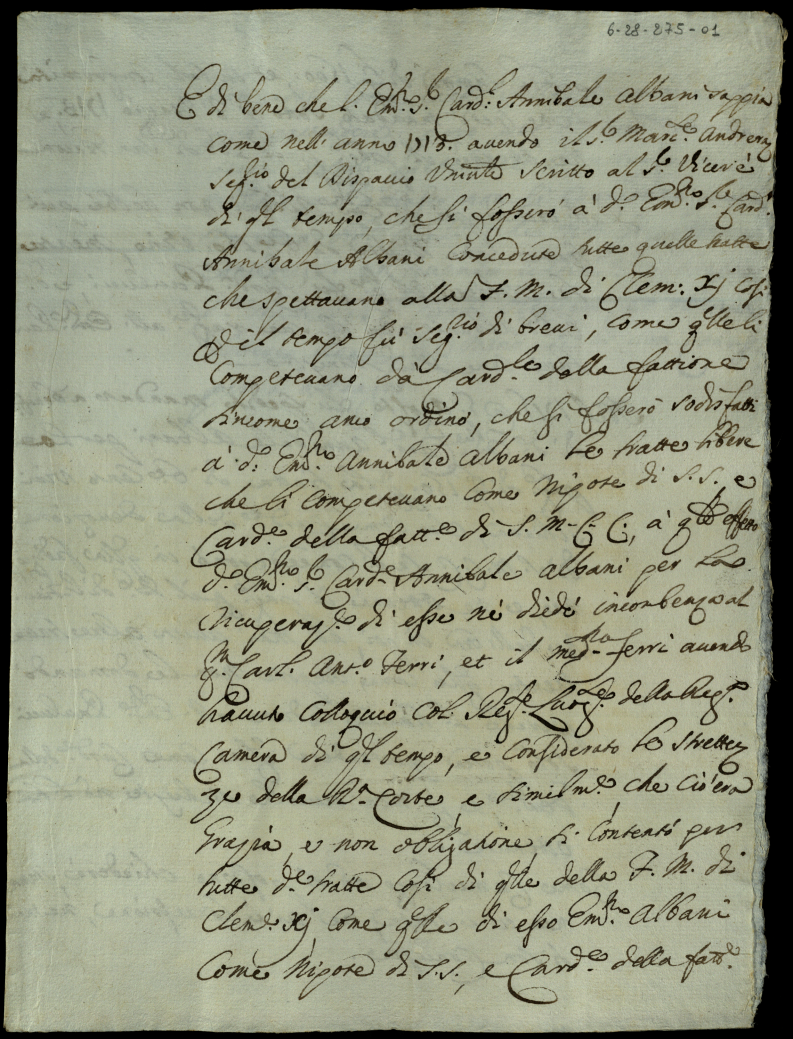 6-28-275-01
E di bene che l'Em.o S.r Card.l Annibale Albani sappia
come nell'anno 1718. avendo il S.r Mar.se Andrea
Seg.rio del Dispaccio scritto al S.r Vicerè
di q.l tempo, che si fossero à d.o Em.mo S.r Card.l
Annibale Albani concedute tutte quelle tratte
che spettavano alla F. M. di Clem: xj così
il tempo fù Seg.rio di brevi, come q.lle li
competevano da Card.le della fattione
sincome anco ordinò, che si fossero sodisfatti
à d.o Em.mo Annibale Albani le tratte libere
che li competevano come Nipote di S. S. e
Card.e della fatt.e di S. M. C. C., à q.to effetto
d.o Em.mo S.r Card.e Annibale Albani per la
ricuperaz.e di esse né diede incombenza al
q.m Carl. Ant.o Ferri, et il med.mo Ferri avendo
havuto colloquio col Reg.e Luog.e della Reg.a
Camera di q.l tempo, e considerato le strettez
ze della R.a Corte, e similm.e che ciò era
grazia, e non obligatione, si contentò per
tutte d.e tratte così di q.lle della F. M. di
Clem.e xj come q.lle di esso Em.mo Albani
come Nipote di S. S., e Card.e della fatt.e